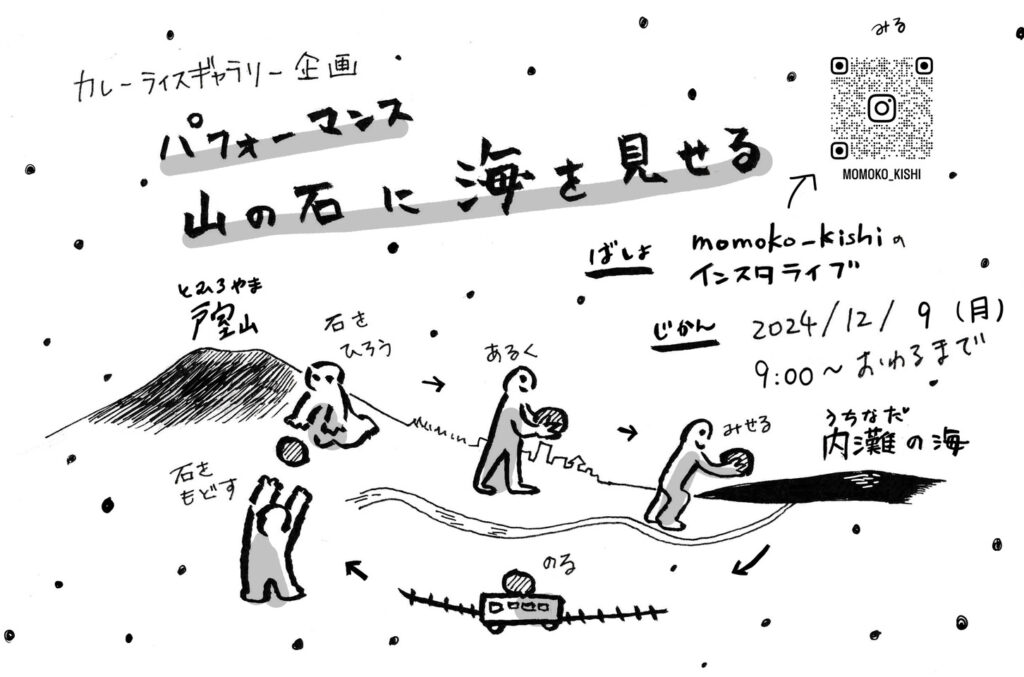 カレーライスギャラリー企画
パフォーマンス
山の石に海を見せる
みる
MOMOKO_KISHI
ばしょ momoko_kishiの
インスタライブ
じかん 2024/12/9(月)
9:00〜おわるまで
とむろやま
戸室山
石を
ひろう
あるく
みせる
うちなだ
内灘の海
のる
石を
もどす